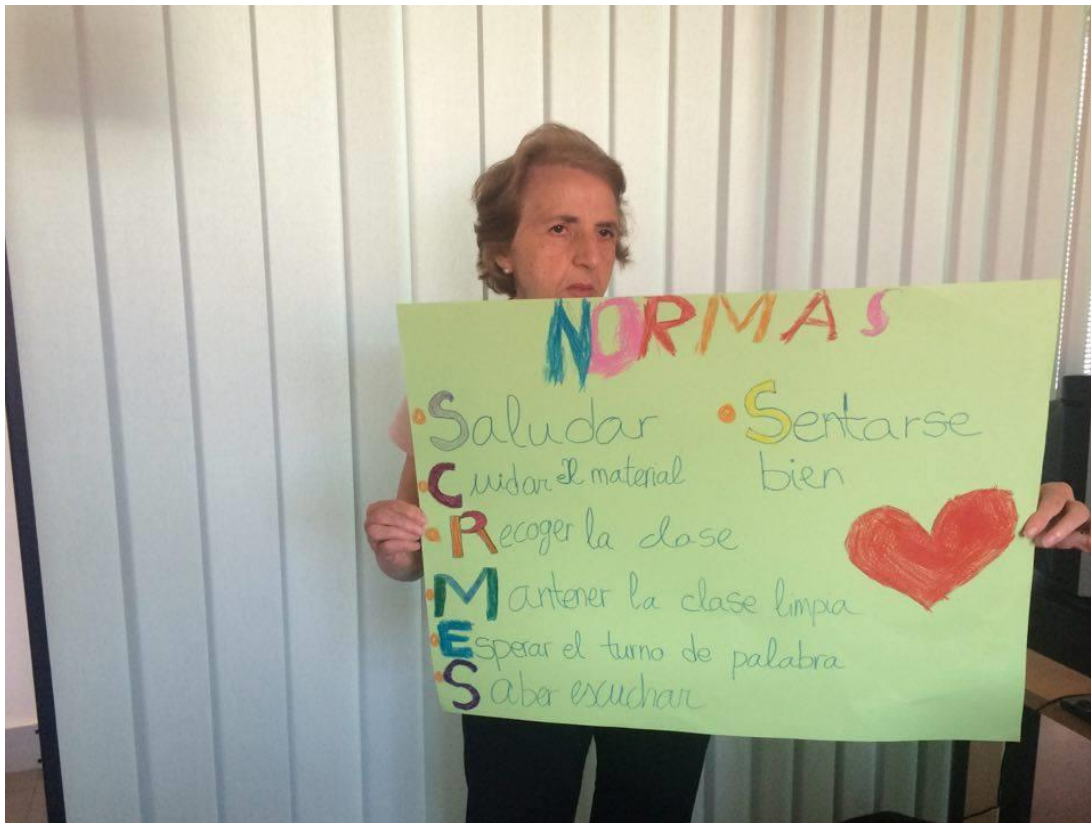 NORMAS
• Saludar
• Cuidar el material
• Recoger la clase
• Mantener la clase limpia
• Esperar el turno de palabra
• Saber escuchar
• Sentarse
bien